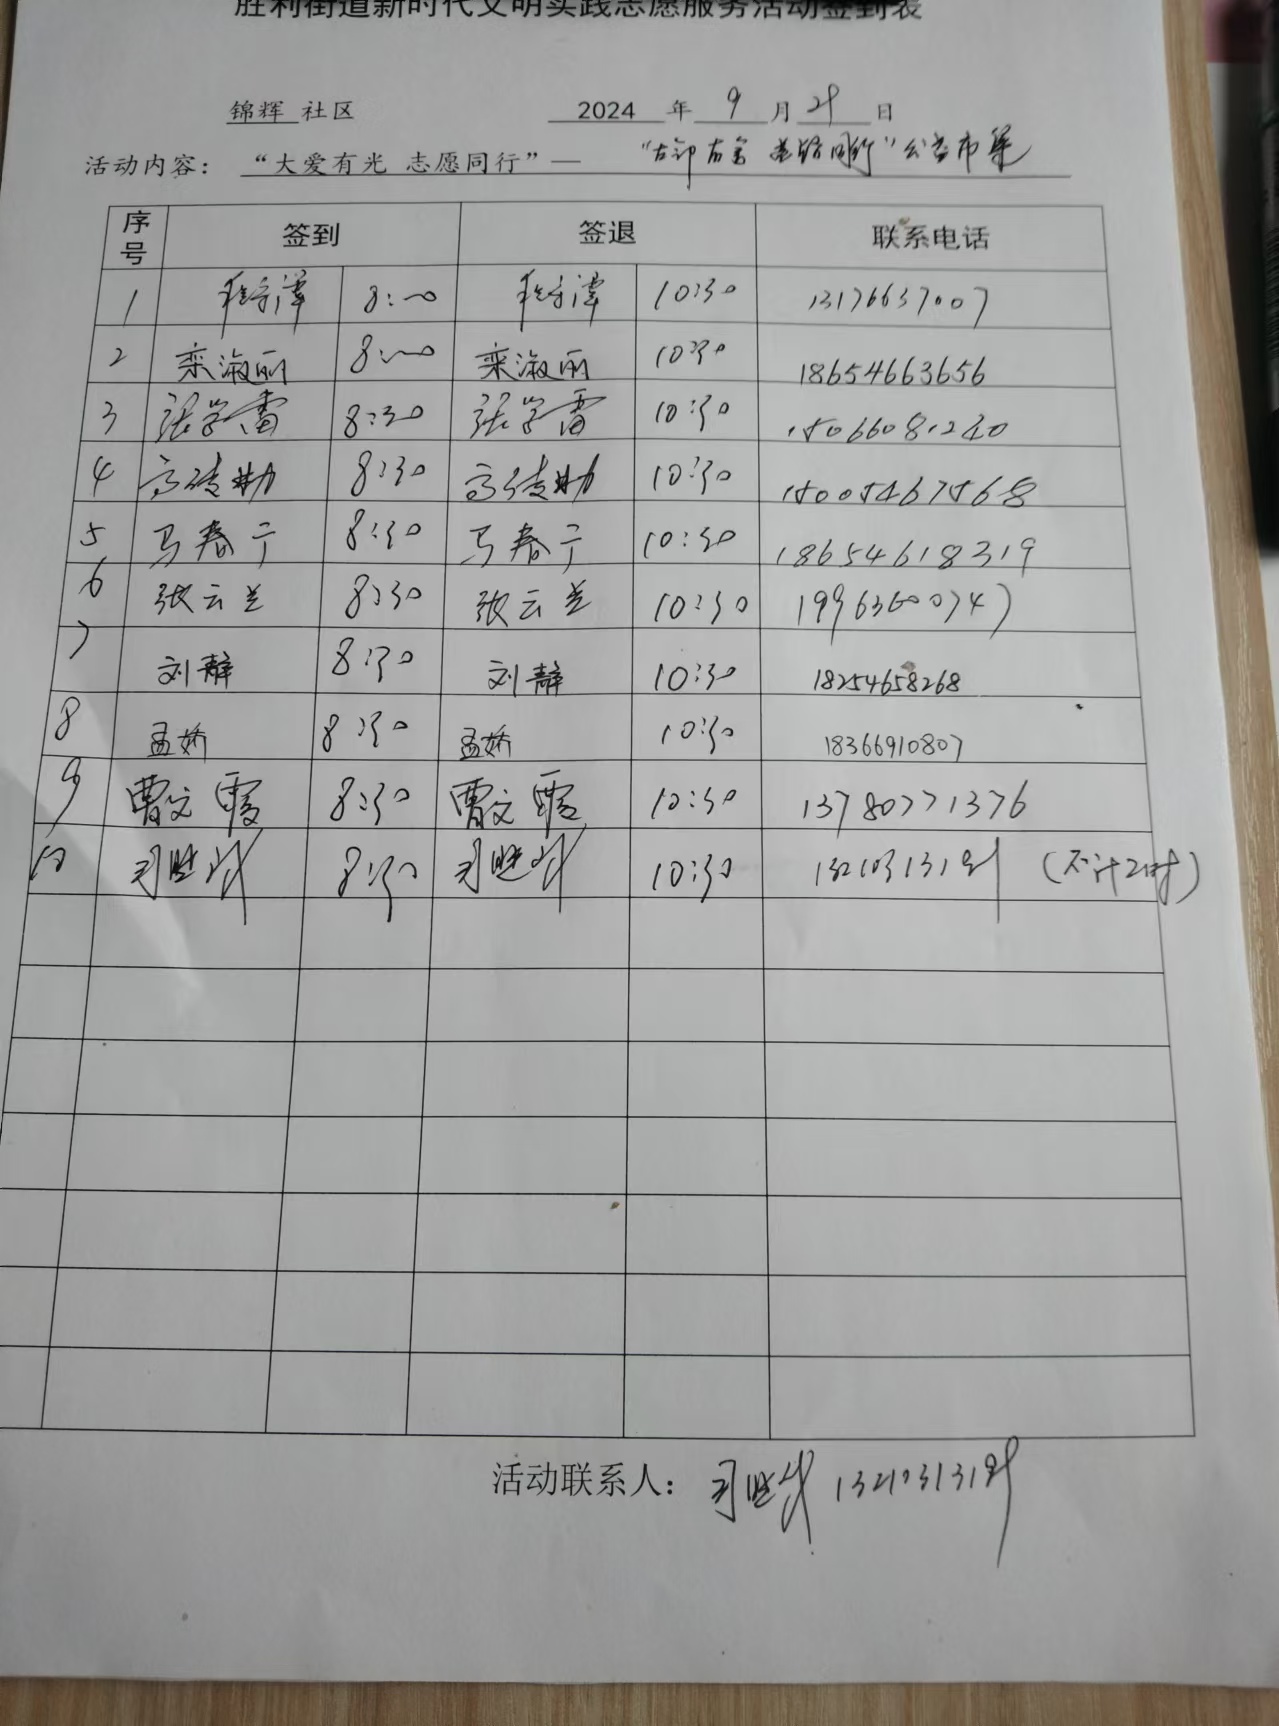 胜利街道新时代文明实践志愿服务活动签到表
锦辉 社区 2024 年 9 月 21 日
活动内容： “大爱有光 志愿同行”— “左邻右舍 益路同行”公益市集
序号 签到 签退 联系电话
1 8:00 10:30 13176637007
2 栾淑丽 8:00 栾淑丽 10:30 18654663656
3 张学雷 8:30 张学雷 10:30
4 8:30 10:30 15005467568
5 马春宁 8:30 马春宁 10:30 18654618319
6 张云兰 8:30 张云兰 10:30 19963600747
7 刘静 8:30 刘静 10:30 18254658268
8 孟娇 8:30 孟娇 10:30 18366910807
9 曹文霞 8:30 曹文霞 10:30 13780771376
10 8:30 10:30 (不计工时)
活动联系人：